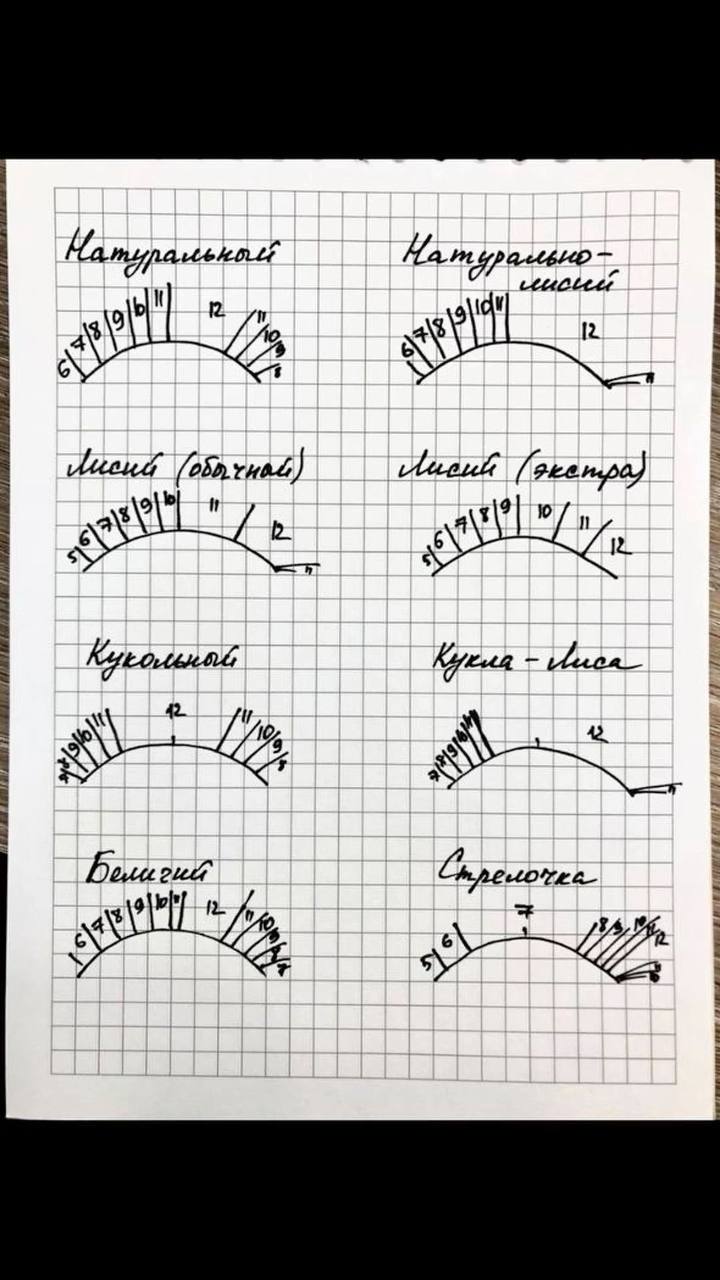 Натуральный
6 7 8 9 10 11 12 11 10 9 8
Натурально-
лисий
6 7 8 9 10 11 12 11
Лисий (обычной)
5 6 7 8 9 10 11 12 11
Лисий (экстра)
5 6 7 8 9 10 11 12
Кукольный
7 8 9 10 11 12 11 10 9 8
Кукла - Лиса
7 8 9 10 11 12 11
Беличий
6 7 8 9 10 11 12 11 10 9 8 7
Стрелочка
5 6 7 8 9 10 11 12 11 10